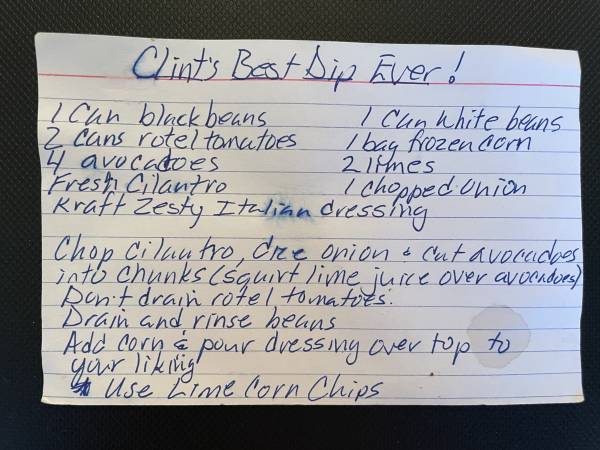 Clint's Best Dip Ever!
1 Can black beans 1 Can White beans
2 cans rotel tomatoes 1 bag frozen corn
4 avocadoes 2 limes
Fresh Cilantro 1 chopped onion
Kraft Zesty Italian dressing
Chop cilantro, dice onion & cut avocadoes
into chunks (squirt lime juice over avocadoes)
Don't drain rotel tomatoes.
Drain and rinse beans
Add corn & pour dressing over top to
your liking
* Use Lime Corn Chips